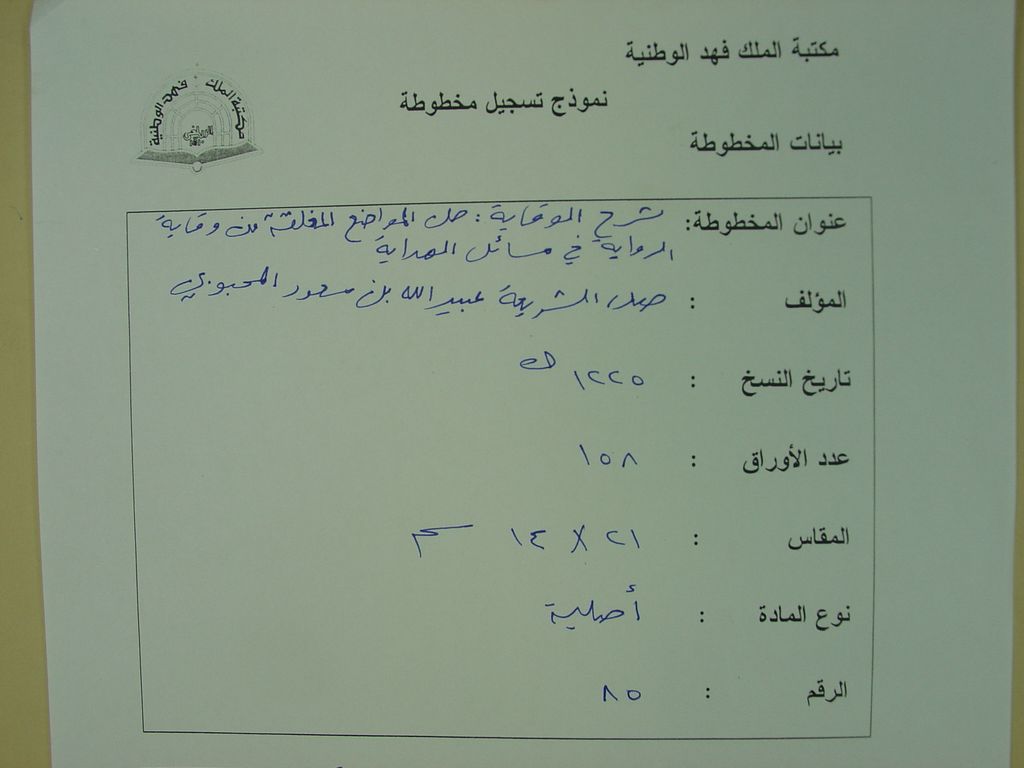 مكتبة الملك فهد الوطنية
نموذج تسجيل مخطوطة
مكتبة الملك فهد الوطنية
الرياض
بيانات المخطوطة
عنوان المخطوطة: شرح الوقاية : حل المواضع المغلقة من وقاية
الرواية في مسائل الهداية
المؤلف : صدر الشريعة عبيد الله بن مسعود المحبوبي
تاريخ النسخ : ١٢٢٥ هـ
عدد الأوراق : ١٥٨
المقاس : ٢١ X ١٤ سم
نوع المادة : أصلية
الرقم : ٨٥